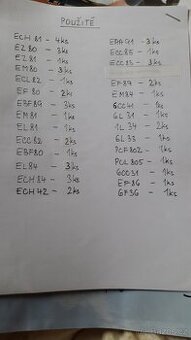 POUŽITÉ
ECH 81 - 4ks
EZ 80 - 3ks
EZ 81 - 1ks
EM 80 - 3ks
ECL 82 - 1ks
EF 80 - 2ks
EBF 89 - 3ks
EM 81 - 1ks
EL 81 - 1ks
ECC 82 - 2ks
EBF 80 - 1ks
EL 84 - 3ks
ECH 84 - 3ks
ECH 42 - 2ks
EAA 91 - 3ks
ECC 85 - 1ks
ECC 83 - 3ks
EF 89 - 2ks
EM 84 - 1ks
6CC 41 - 1ks
6L 31 - 1ks
1L 34 - 2ks
6L 33 - 1ks
PCF 802 - 1ks
PCL 805 - 1ks
6CC 31 - 1ks
EF 86 - 1ks
6F 36 - 1ks